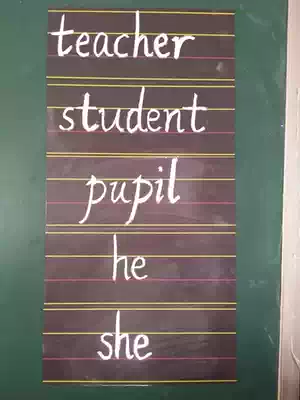 teacher
student
pupil
he
she